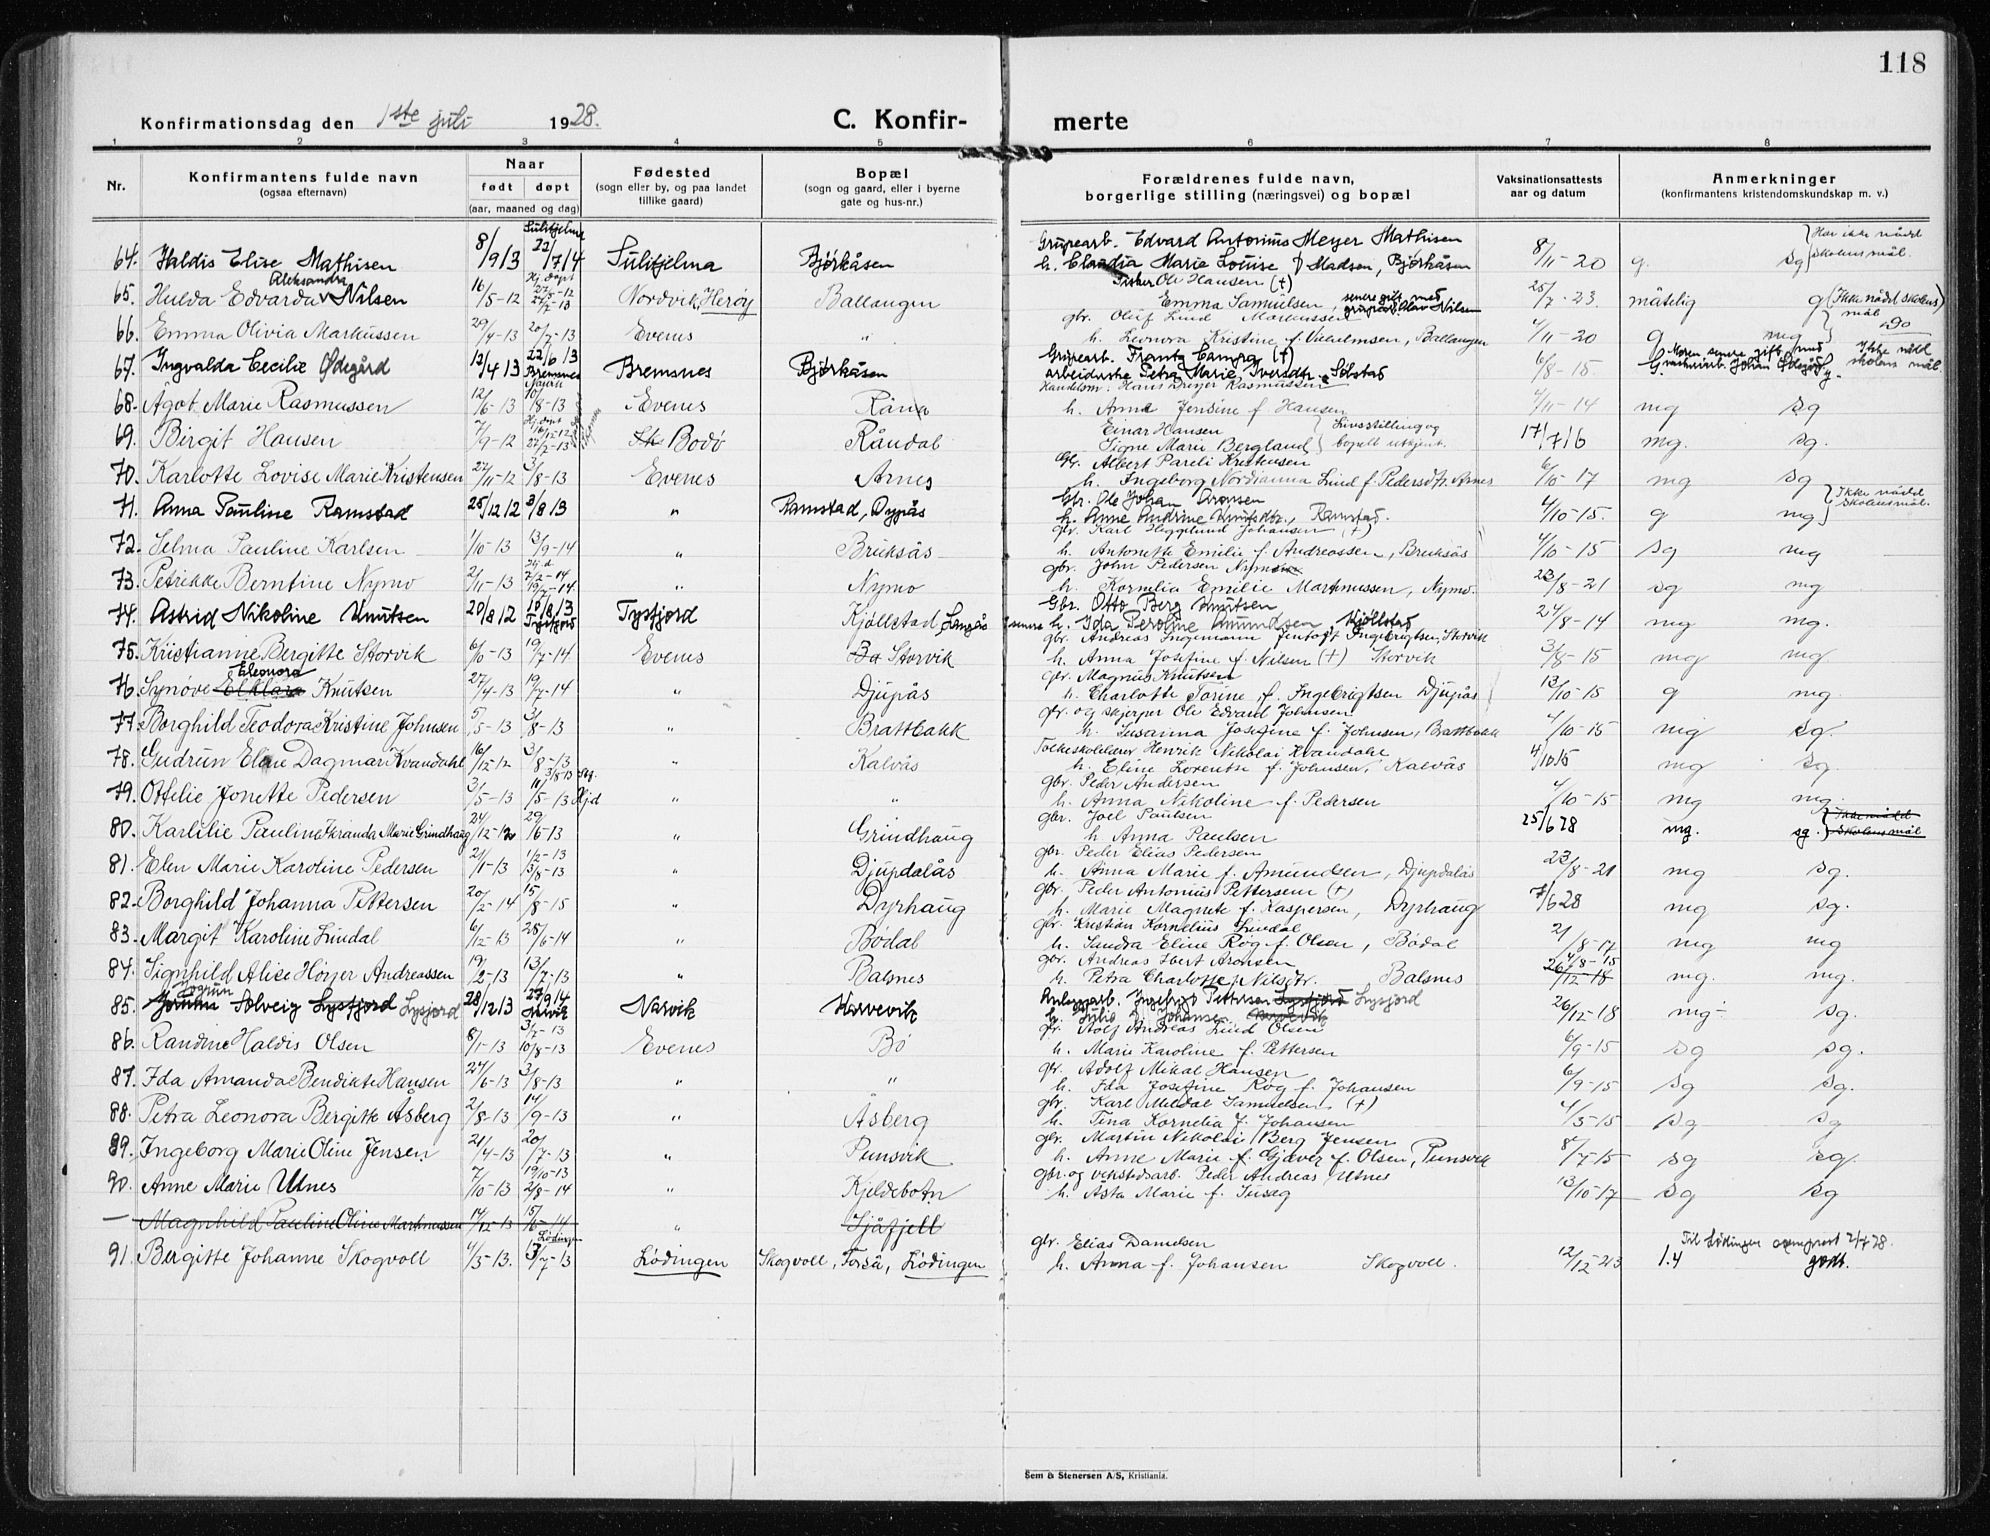 118
Konfirmationsdag den 1ste juli 1928.
C. Konfir- merte
1 2 3 4 5 6 7 8
Nr.
Konfirmantens fulde navn
(ogsaa efternavn)
Naar
født døpt
(aar, maaned og dag)
Fødested
(sogn eller by, og paa landet
tillike gaard)
Bopæl
(sogn og gaard, eller i byerne
gate og hus-nr.)
Forældrenes fulde navn,
borgerlige stilling (næringsvei) og bopæl
Vaksinationsattests
aar og datum
Anmerkninger
(konfirmantens kristendomskundskap m. v.)
Sulitjelma
Grupearb. Edvard Antonius Meyer Mathisen
Har ikke nådd
64. Haldis Elise Mathisen 8/9 13 22/7 14 Sulitjelma Bjørkåsen h. Claudia Marie Louise f. Madsen, Bjørkåsen 8/11-20 g. sg skolens mål.
Aleksandra
Fisker Oli Hansen (+)
65. Hulda Edvarda Nilsen 16/5-12 Nordvik, Herøy Ballangen Emma Samuelsen, senere gift med grubearb. Olav Nilsen 25/7-23. måtelig g (Ikke nådd skolens mål)
gbr. Oluf Lind Markussen
66. Emma Olivia Markussen 29/4-13 20/7-13 Evenes " h. Leonora Kristine f. Vilhelmsen, Ballangen 4/11-20 g mg
Grupearb. Frantz (+)
67. Ingvalda Cecilie Ødegård 12/4 13 22/6 13 Bremsnes Bremsnes Bjørkåsen arbeiderske Petra Marie Iversdtr. Solstad 6/8-15. G. Moren senere gift med Johan Ødegård g. Ikke nådd skolens mål.
Handelsm. Hans Dreyer Rasmussen
68. Ågot Marie Rasmussen 12/6-13 10/8-13 Evenes Råna h. Anna Jensine f. Hansen 4/11-14 mg sg
Einar Hansen Livsstilling og
69. Birgit Hansen 7/9-12 Bodø Råndal Signe Marie Bergland bopæl ukjent. 17/7 16 mg. sg.
Gbr. Albert Pareli Kristensen
70. Karlotte Lovise Marie Kristensen 27/11-12 3/8-13 Evenes Arnes h. Ingeborg Nordianna Lind f. Pedersdtr. Arnes 6/10-17 mg sg
Gbr. Ole Johan Aronsen
Ikke nådd
71. Anna Pauline Ramstad 25/12 12 3/8 13 " Ramstad, Dypås h. Anne Andrine Knutsdtr., Ramstad. 4/10-15. g mg skolens mål.
gbr. Karl Hegglund Johansen (+)
72. Selma Pauline Karlsen 1/10-13 13/9-14 " Bruksås h. Antonette Emilie f. Andreassen, Bruksås 4/10-15 sg mg
gbr. John Pedersen Nymo
73. Petrikke Berntine Nymo 2/11-13 19/7-14. " Nymo h. Kornelia Emilie Markmussen, Nymo. 23/8-21 sg mg
Gbr. Otto Berg Knutsen
74. Astrid Nikoline Knutsen 20/8 12 10/8 13 Tysfjord Tysfjord Kjøllstad h. Ida Peroline Amundsen, Kjøllstad 24/8-14 mg mg.
gbr. Andreas Ingemann Jentoft Ingebrigtsen, Storvik
75. Kristianne Bergitte Storvik 6/10-13 19/7-14 Evenes Bø Storvik h. Anna Josefine f. Nilsen (+) Storvik 3/8-15 mg mg
Eleonora
gbr. Magnus Knutsen
76. Synøve Elklara Knutsen 27/4-13 19/7-14 " Djupås h. Charlotte Torine f. Ingebrigtsen Djupås 13/10-15 g mg.
gbr. og skjerper Ole Edvard Johnsen
77. Borghild Teodora Kristine Johnsen 5/5-13 3/8-13 " Brattbakk h. Susanna Josefine f. Johnsen, Brattbakk 4/10-15 mg sg.
Folkeskolelærer Henrik Nikolai Kvandahl
78. Gudrun Eline Dagmar Kvandahl 16/12-12 3/8-13 " Kalvås h. Eline Lorentse f. Johnsen, Kalvås 4/10 15 mg sg.
gbr. Peder Andersen
79. Ottelie Jonette Pedersen 3/5-13 11/5-13 Hjd " " h. Anna Nikoline f. Pedersen 4/10-15 mg mg.
gbr. Joel Paulsen
80. Karlilie Pauline Marie Grindhaug 24/12-12 29/6-13 " Grindhaug h Anna Paulsen 25/6 28 mg. sg. Ikke nådd skolens mål
gbr. Peder Elias Pedersen
81. Elen Marie Karoline Pedersen 3/8-13 " Djupdalås h. Anna Marie f. Amundsen, Djupdalås 23/8-21 mg sg.
gbr. Peder Antonius Pettersen (+)
82. Borghild Johanna Pettersen 20/2-14 15/8-15 " Dyrhaug h. Marie Magnete f. Kaspersen, Dyrhaug 7/6 28 mg sg.
gbr. Kristian Kornelius Lindal
83. Margit Karoline Lindal 6/12-13 28/6-14 " Bødal h. Sandra Eline Røg f. Olsen, Bødal 21/8-17 mg mg
gbr. Andreas Ebert Aronsen
84. Signhild Alise Høyer Andreassen 19/2-13 13/7-13 " Balsnes h. Petra Charlotte Nilsdtr. Balsnes mg. mg.
Jogrun
85. Jorunn Solveig Lysfjord Lysjord 28/12 13 Narvik Korvevik h. Julie Johansen 26/12-18 mg- sg.
gbr. Rolf Andreas Lind Olsen
86. Randine Haldis Olsen 8/1-13 10/8-13 Evenes Bø h. Marie Karoline f. Pettersen 6/9-15 sg sg.
gbr. Adolf Mikal Hansen
87. Ida Amanda Bendikte Hansen 24/6-13 3/8-13 " " h. Ida Josefine Røg f. Johansen 6/9-15 sg sg.
gbr. Karl Meldal Samuelsen (+)
88. Petra Leonora Bergitte Åsberg 2/8-13 14/9-13 " Åsberg h. Tina Kornelia f. Johansen 4/5-15 sg sg
gbr. Martin Nikolai Berg Jensen
89. Ingeborg Marie Oline Jensen 21/4-13 20/7-13 " Punsvik h. Anne Marie f. Gjæver f. Olsen, Punsvik 8/7-15 sg sg.
gbr. og verkstedsarb. Peder Andreas Utnes
90. Anne Marie Utnes 7/10-13 19/10-13 2/8-14 " Kjeldebotn h. Asta Marie f. 13/10-17 sg sg
— Magnhild Pauline Oline Markmussen 14/12-13 15/6-14 " Sjåfjell
Lødingen
gbr. Elias Danielsen
Til Lødingen
91. Bergitte Johanne Skogvoll 4/3-13. 13/7-13 Lødingen Skogvoll, Forså, Lødingen h. Anna f. Johansen Skogvoll. 12/12-23 1.4 godt.
Sem & Stenersen A/S, Kristiania.